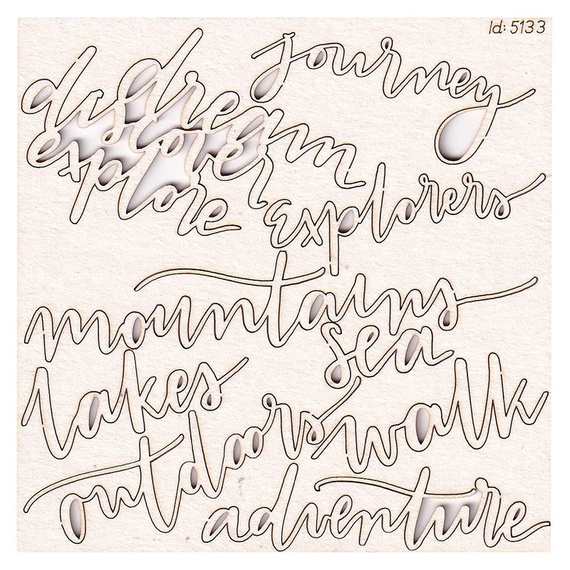 Id: 5133
journey
dream
discover
explore
explorers
mountains
sea
lakes
walk
outdoors
adventure